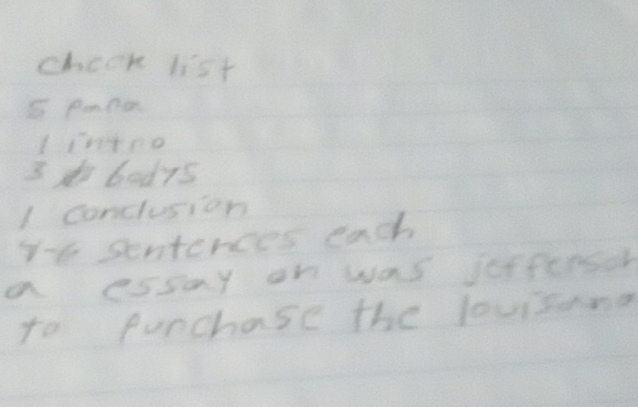 check list
5 para
1 intro
3 bodys
1 conclusion
4-6 sentences each
a essay on was jefferson
to purchase the louisiana